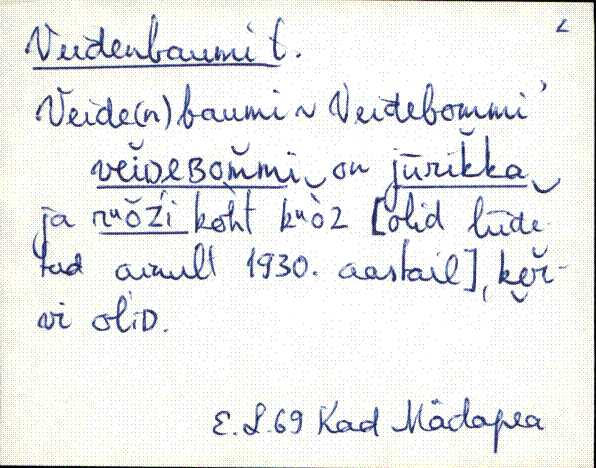 Veidenbaumi t.
Veide(n)baumi ~ Veidebommi
vei̮DEBOm̆mi, on jūrik̆ka
ja ruo̬ži koht kuòz [olid liide-
tud ainult 1930. aastail], ker̆-
vi oliD.
E. L. 69 Kad Mädapea